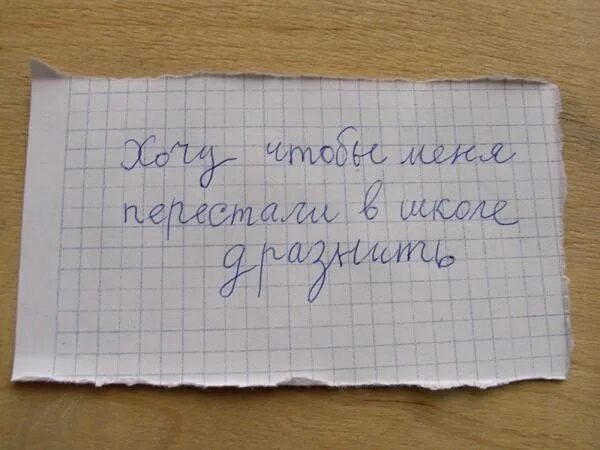 Хочу чтобы меня
перестали в школе
дразнить